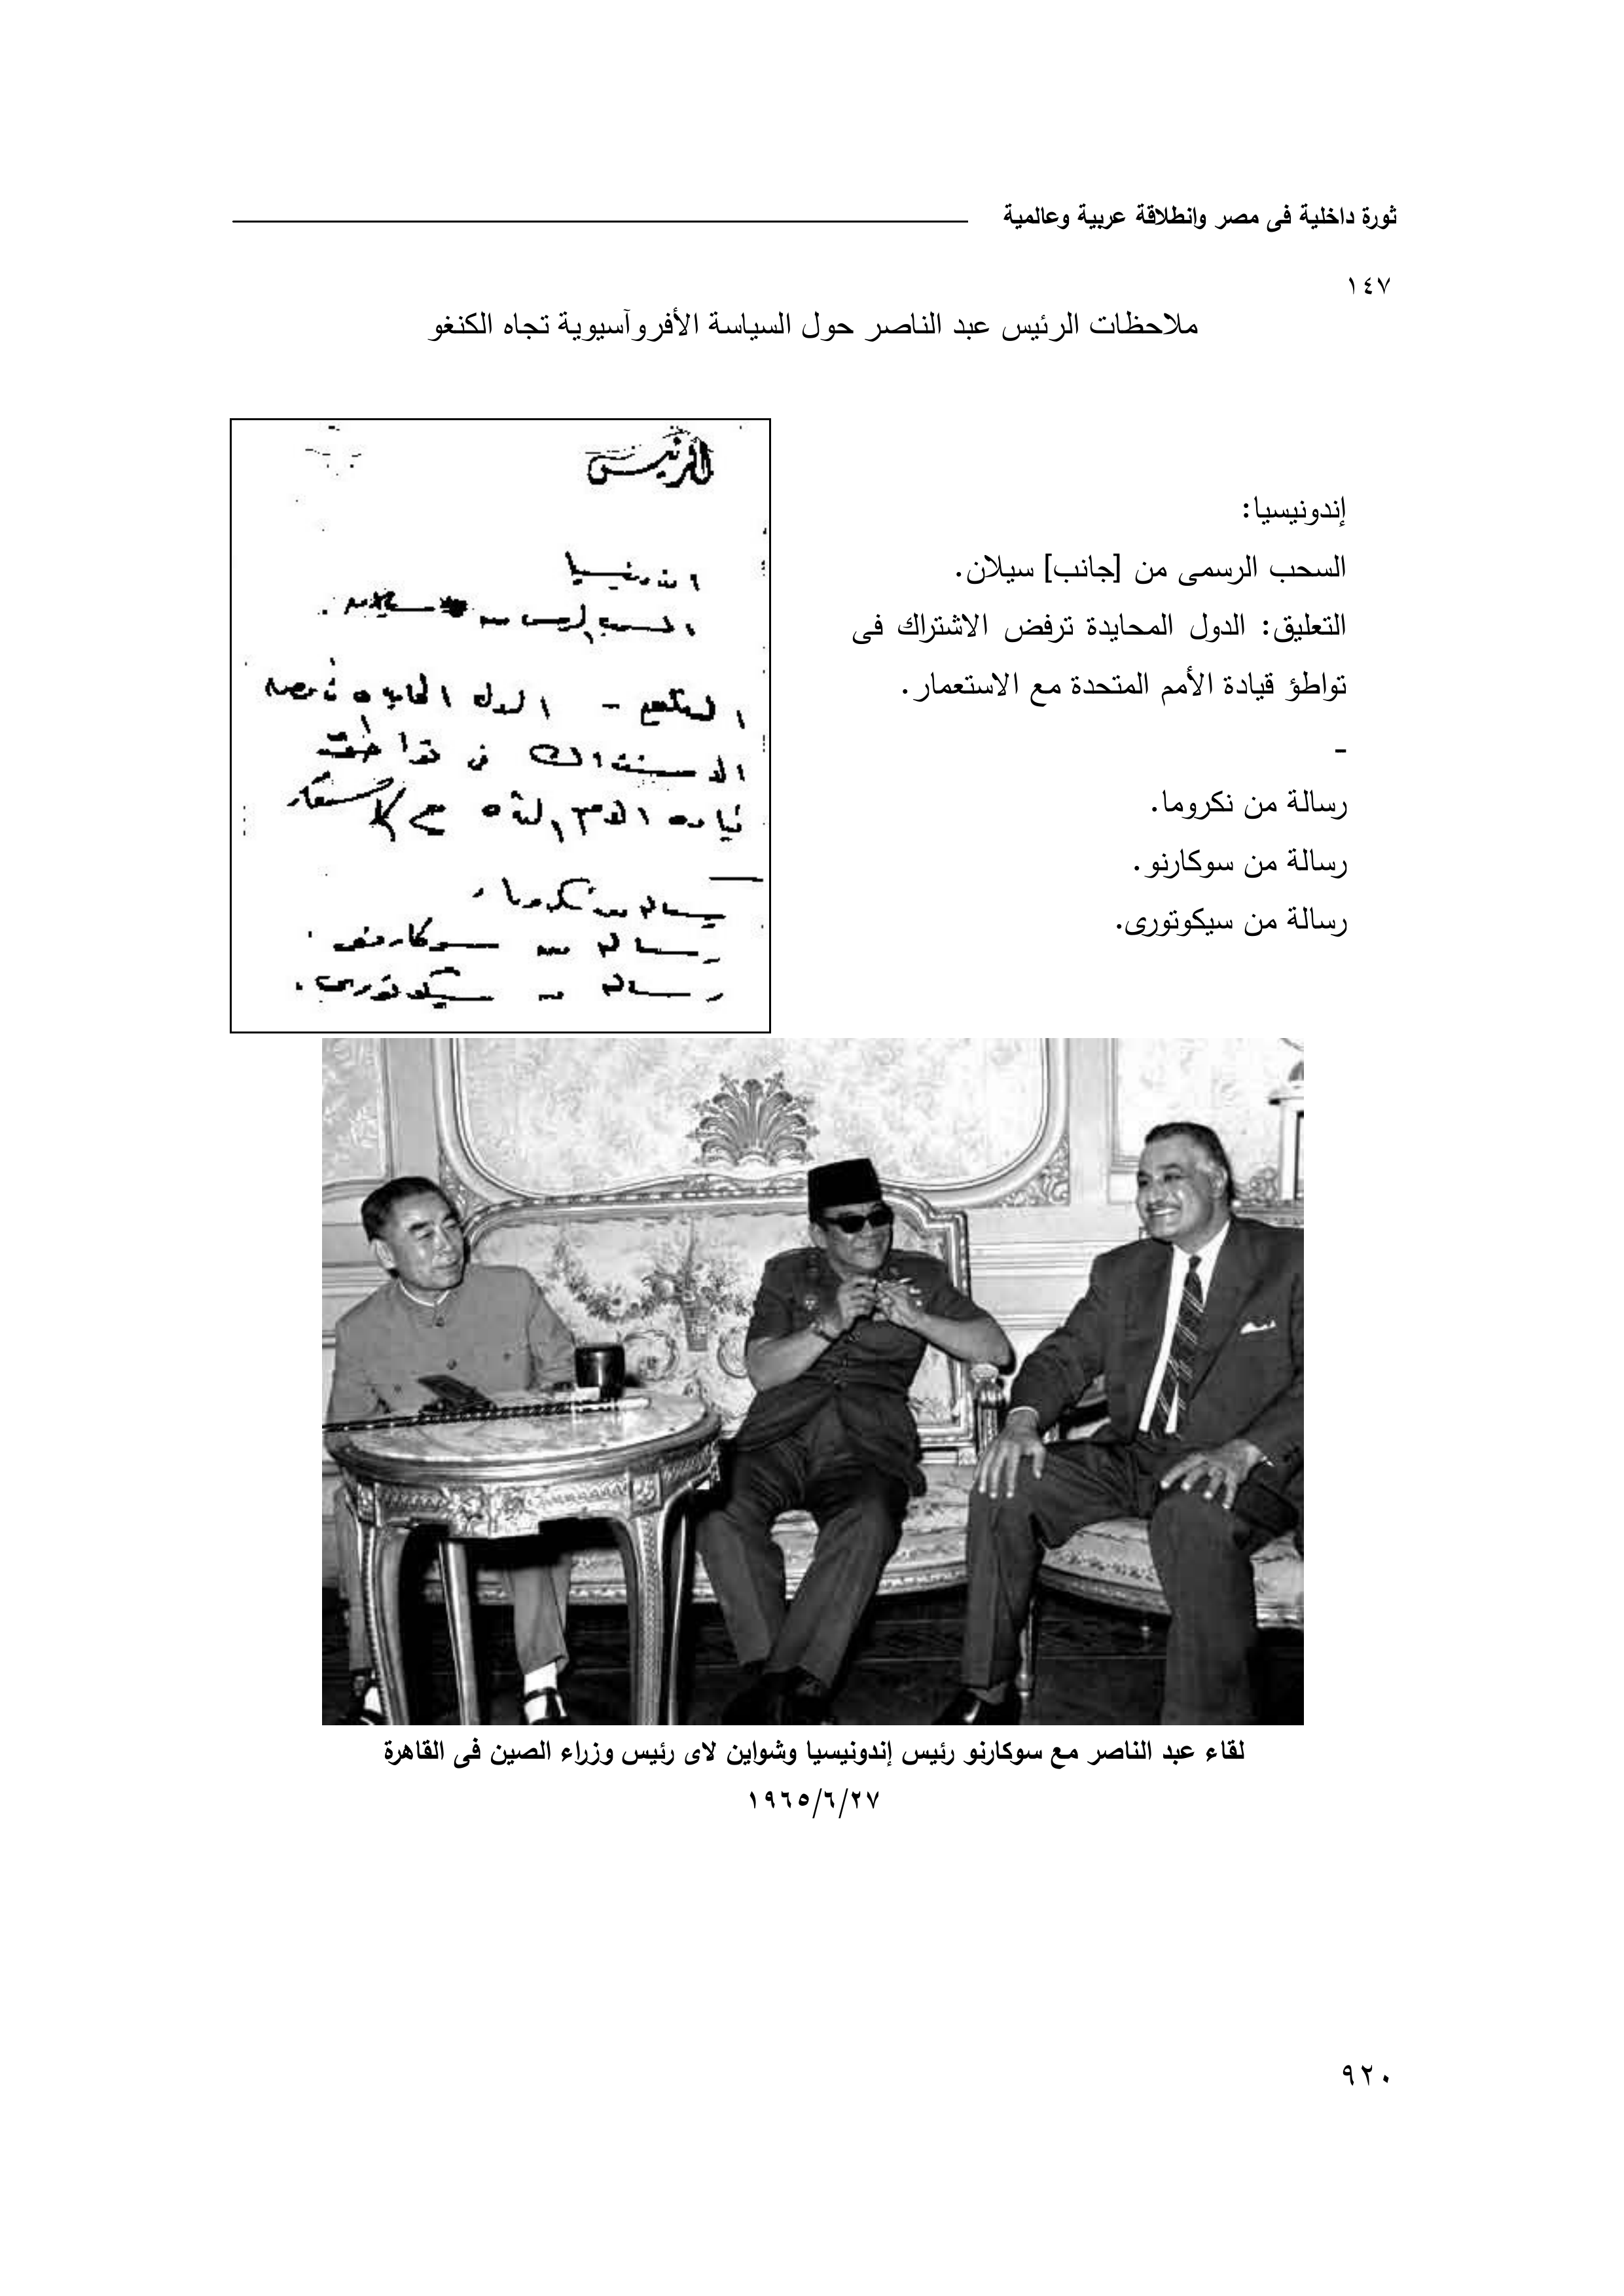 ثورة داخلية فى مصر وانطلاقة عربية وعالمية
١٤٧
ملاحظات الرئيس عبد الناصر حول السياسة الأفروآسيوية تجاه الكنغو
إندونيسيا:
السحب الرسمى من [جانب] سيلان.
التعليق: الدول المحايدة ترفض الاشتراك فى
تواطؤ قيادة الأمم المتحدة مع الاستعمار.
-
رسالة من نكروما.
رسالة من سوكارنو.
رسالة من سيكوتورى.
الرئيس
اندونيسيا
السحب الرسمى من سيلان.
التعليق - الدول المحايده ترفض
الاشتراك فى تواطؤ
قياده الامم المتحده مع الاستعمار
رساله من نكروما.
رساله من سوكارنو.
رساله من سيكوتورى.
لقاء عبد الناصر مع سوكارنو رئيس إندونيسيا وشواين لاى رئيس وزراء الصين فى القاهرة
١٩٦٥/٦/٢٧
٩٢٠